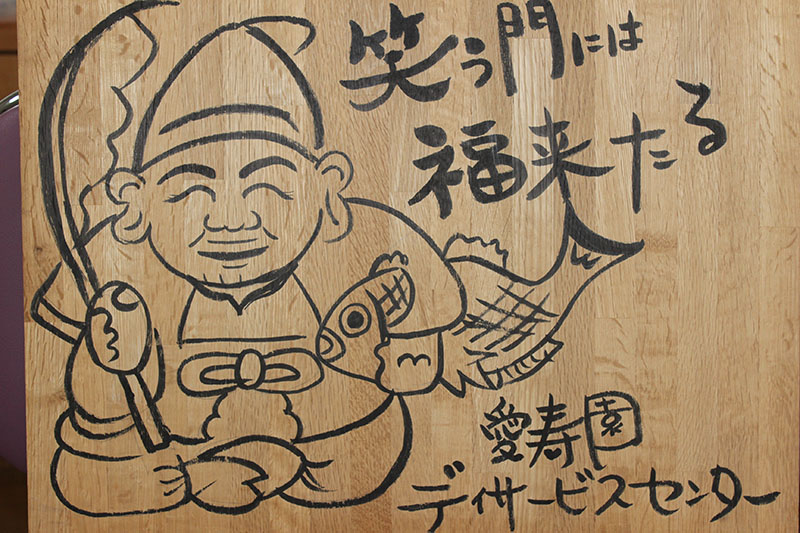 笑う門には
福来たる
愛寿園
デイサービスセンター